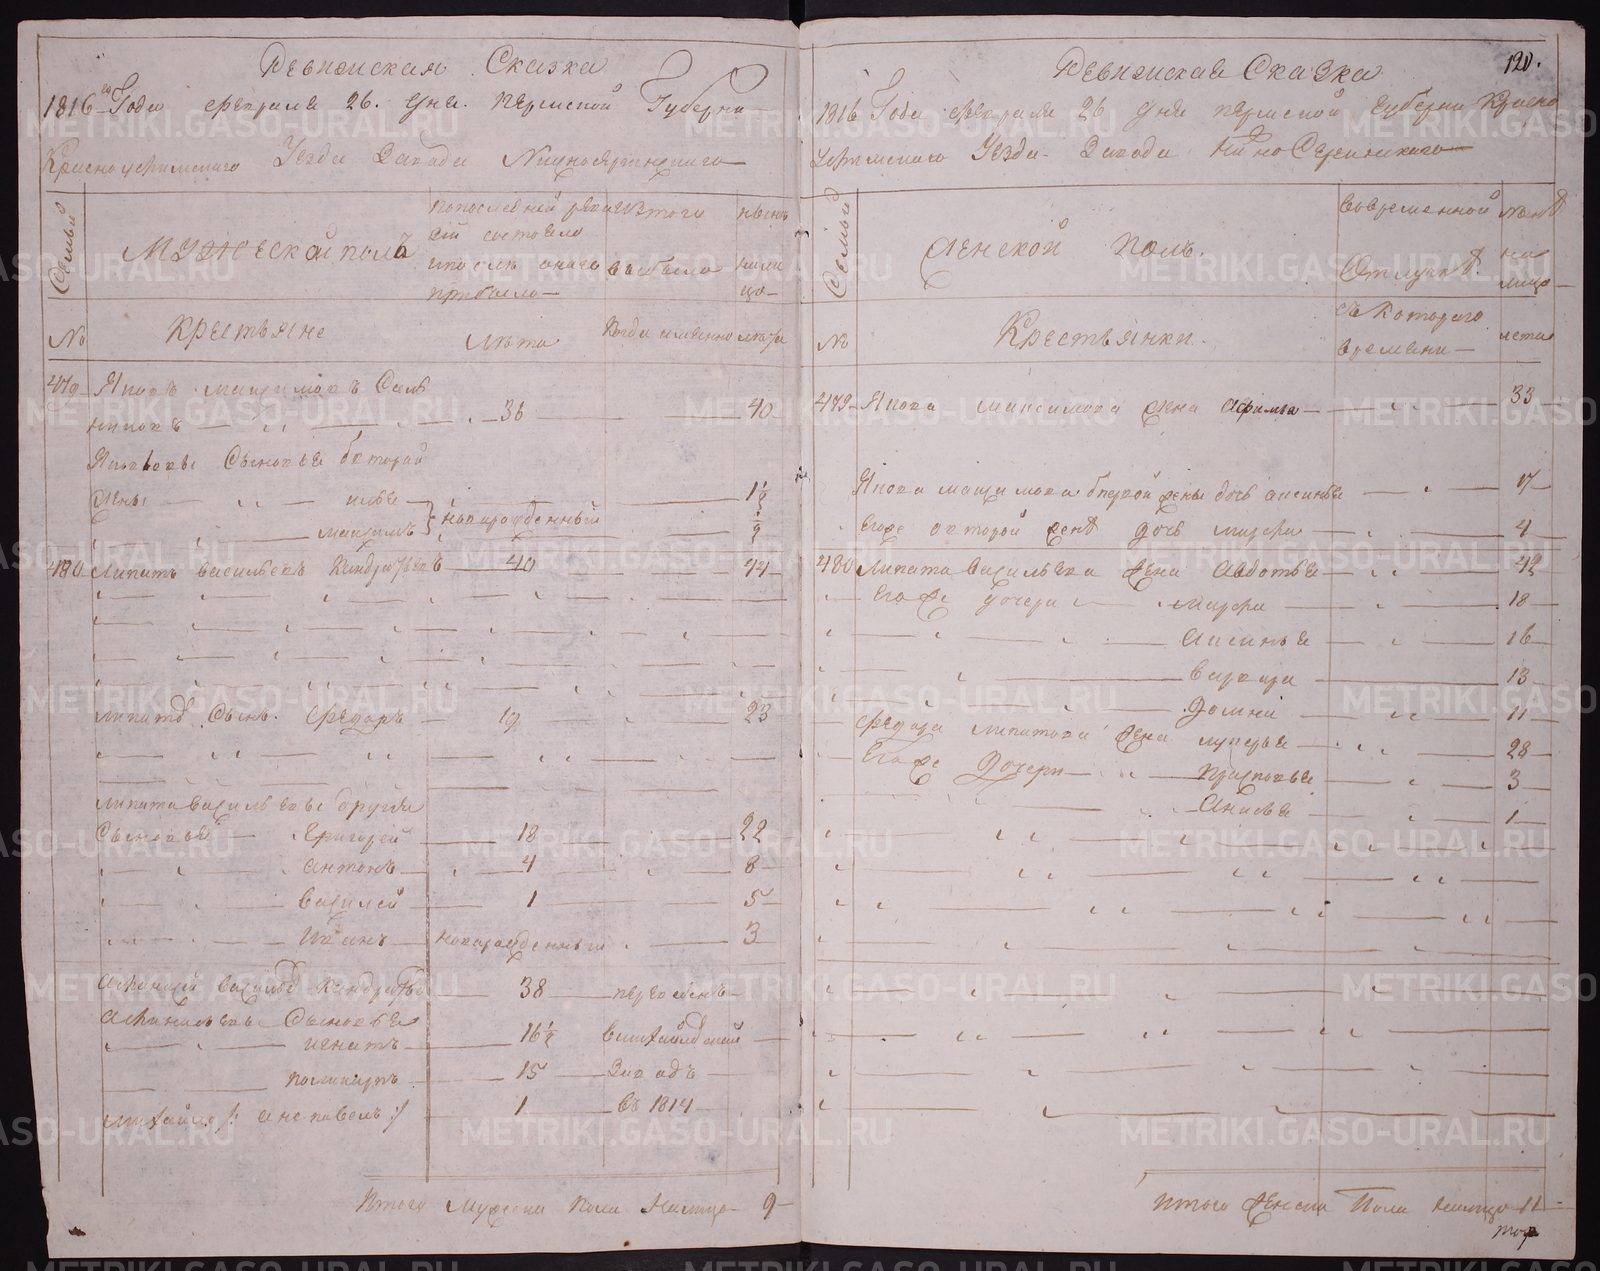 Ревизская Сказка
1816го Года февраля 26. дня. Пермской Губерни
Красноуфимского Уезда Завода Нижносергинскаго
Семьи
Мужеской полъ
по последней ревизской состояло и после онаго прибыло
Изтого выбыло
ныне на лицо
№
Крестьяне
лета
когда имянно
лета
479
Яковъ Максимовъ Сель
никовъ 36 40
Яковлевы Сыновья второй
жены илья новорожденный 1½
максимъ ½
480 Липатъ васильевъ Кондратьевъ 40 44
липата Сынъ Федоръ 19 23
липата васильевы другия
Сыновья Григорей 18 22
антонъ 4 8
василей 1 5
Иванъ новорожденный 3
Афанасей васильевъ Кондратьевъ 38 переведенъ
Афанасьевы Сыновья
игнатъ 16½ вмихайловской
поликарпъ 15 Заводъ
михайло /: а не павелъ :/ 1 въ 1814
Итого мужеска пола налицо 9
120.
Ревизская Сказка
1816 Года февраля 26 дня пермской губерни Красно
уфимского Уезда Завода Нижно Сергинскаго
Семьи
Женской полъ.
вовременной Отлучке
ныне на лицо
№
Крестьянки.
съ Котораго времени
лета
479 Якова максимова жена афимья 33
Якова максимова 1 первой жены дочь аксинья 17
Егоже второй жены дочь марфа 4
480 Липата васильева жена Авдотья 42
Егоже дочери марфа 18
Аксинья 16
варвара 13
Домна 11
Федора липатова жена лукерья 28
Егоже Дочери прасковья 3
Анисья 1
Итого женска Пола налицо 11